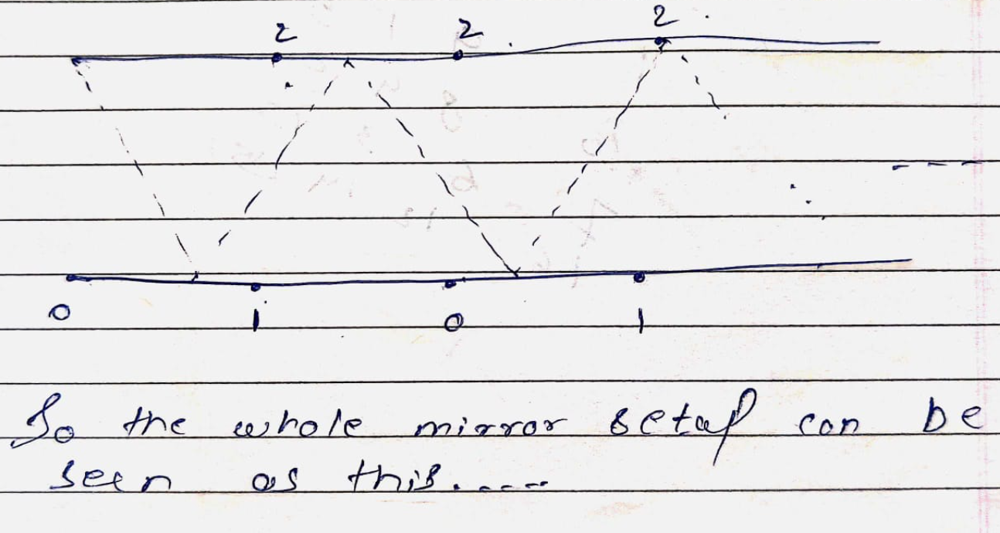 2 2 2
0 1 0 1
So the whole mirror setup can be
seen as this.....